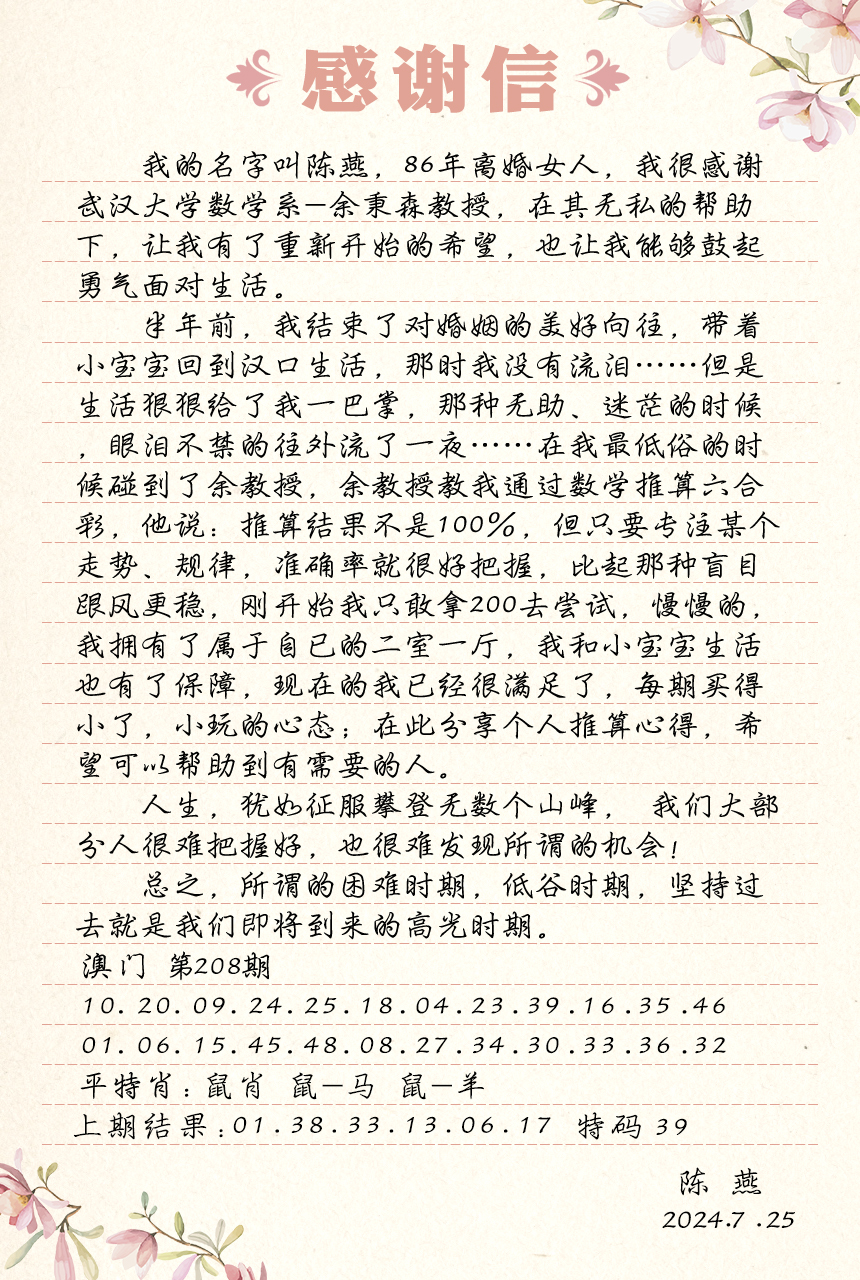 感谢信
我的名字叫陈燕，86年离婚女人，我很感谢
武汉大学数学系—余秉森教授，在其无私的帮助
下，让我有了重新开始的希望，也让我能够鼓起
勇气面对生活。
半年前，我结束了对婚姻的美好向往，带着
小宝宝回到汉口生活，那时我没有流泪……但是
生活狠狠给了我一巴掌，那种无助、迷茫的时候
，眼泪不禁的往外流了一夜……在我最低俗的时
候碰到了余教授，余教授教我通过数学推算六合
彩，他说：推算结果不是100%，但只要专注某个
走势、规律，准确率就很好把握，比起那种盲目
跟风更稳，刚开始我只敢拿200去尝试，慢慢的，
我拥有了属于自已的二室一厅，我和小宝宝生活
也有了保障，现在的我已经很满足了，每期买得
小了，小玩的心态；在此分享个人推算心得，希
望可以帮助到有需要的人。
人生，犹如征服攀登无数个山峰， 我们大部
分人很难把握好，也很难发现所谓的机会！
总之，所谓的困难时期，低谷时期，坚持过
去就是我们即将到来的高光时期。
澳门 第208期
10.20.09.24.25.18.04.23.39.16.35.46
01.06.15.45.48.08.27.34.30.33.36.32
平特肖：鼠肖 鼠—马 鼠—羊
上期结果：01.38.33.13.06.17 特码 39
陈 燕
2024.7.25